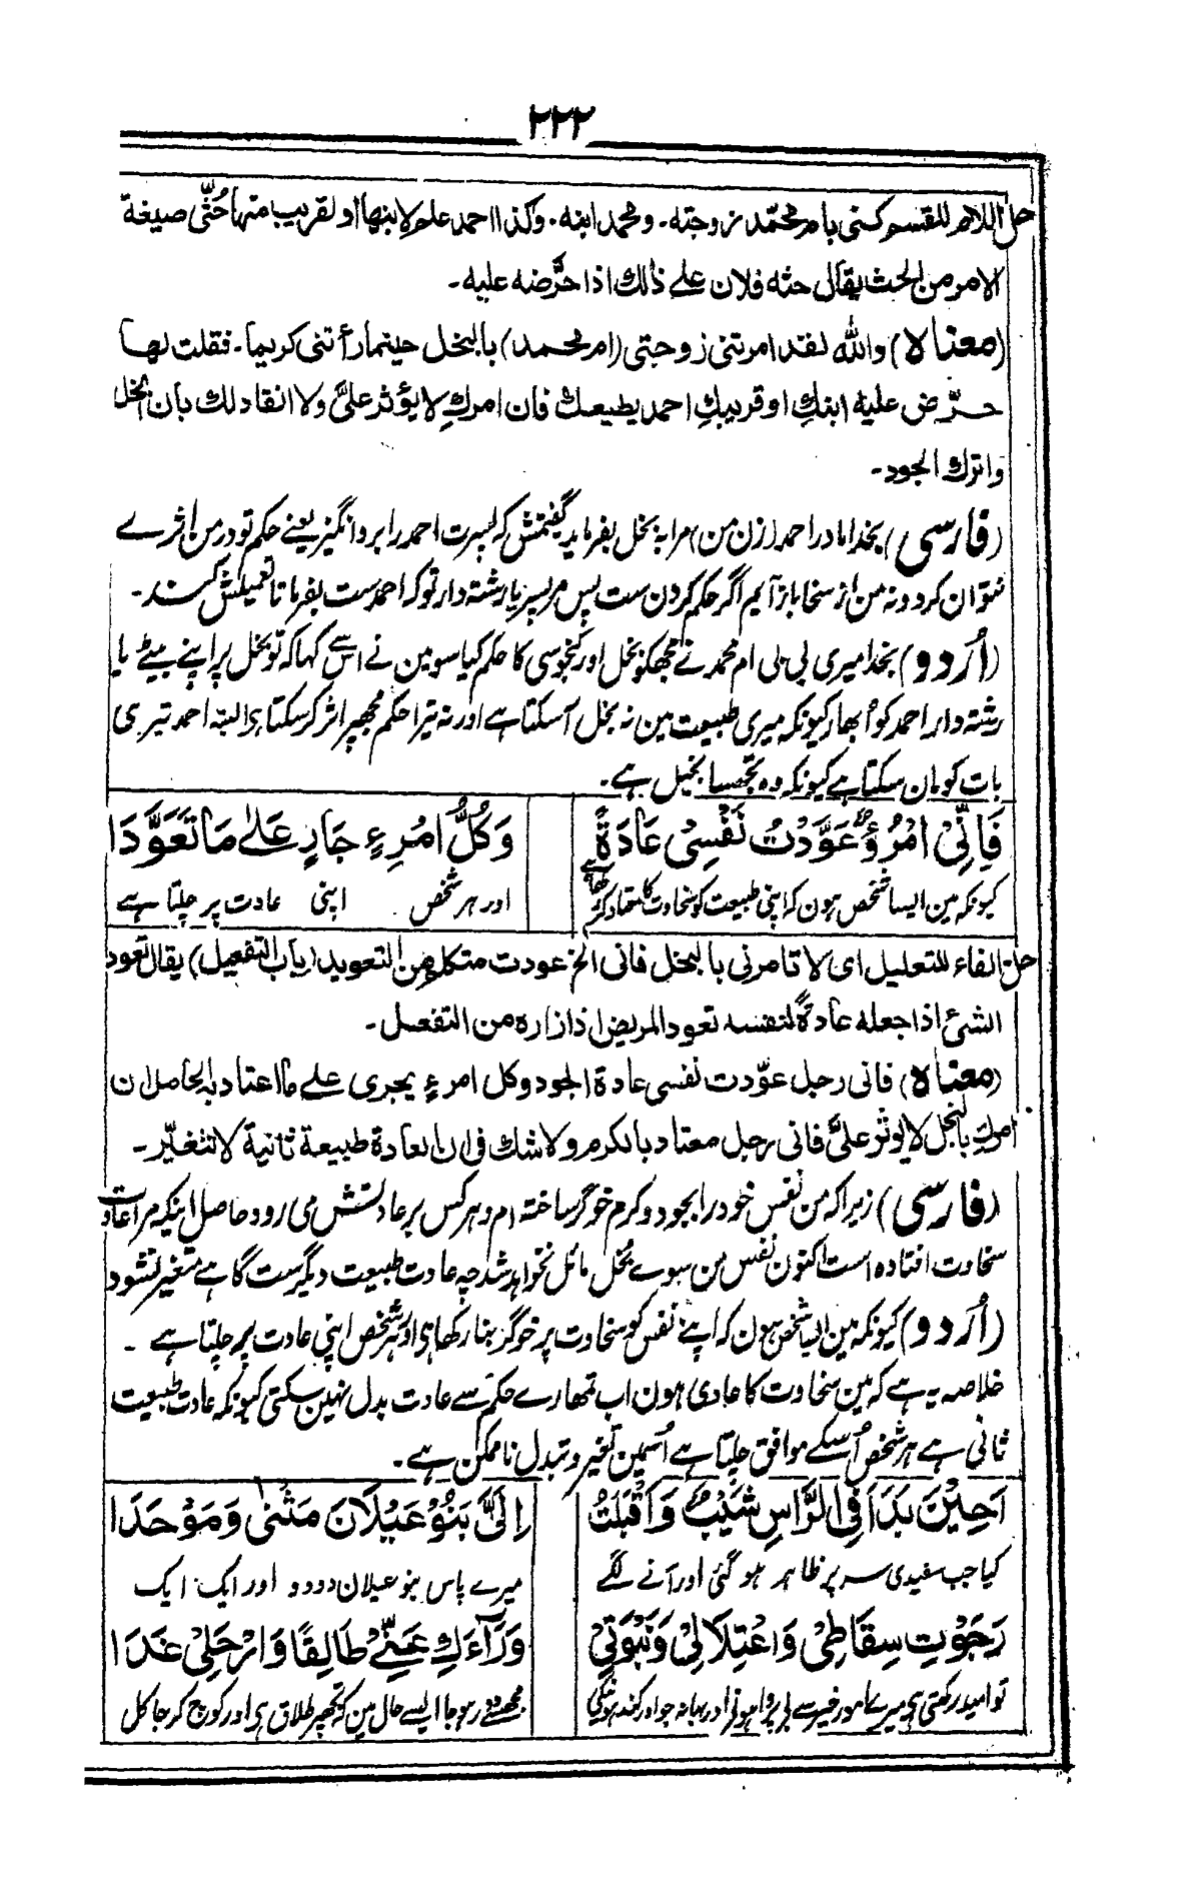 ۲۲۲
حل: اللام للقسم کنی بام محمّد زوجته۔ ومحمد ابنه۔ وکذا احمد علم لابنها او لقریب منها حُثّی صیغة
الامر من الحث یقال حثه فلان علے ذالك اذا حرَّضه علیه۔
(معناہ) والله لقد امرتنی زوجتی (ام محمد) بالبخل حینما رأتنی کریما۔ فقلت لها
حرّض علیه ابنكِ او قریبكِ احمد یطیعك فان امركِ لا یؤثر علیَّ ولا انقاد لك بان ابخل
واترك الجود۔
(فارسی) بخدا مادر احمد از زن من مرا به بخل بفرماید گفتمش که پسرت احمد را برو انگیز یعنے حکم تو در من اثرے
نتوان کرد و نه من از سخا باز آیم اگر حکم کردن ست پس بر پسر یا رشته دار تو که احمد ست بفرما تا تعمیلش کند۔
(اُردو) بخدا میری بی بی ام محمد نے مجھکو بخل اور کنجوسی کا حکم کیا سو مین نے اُسے کہا کہ تو بخل پر اپنے بیٹے یا
رشته دار احمد کو اُبھار کیونکہ میری طبیعت مین نہ بخل آسکتا ہے اور نہ تیرا حکم مجھپر اثر کرسکتا ہی البتہ احمد تیری
بات کو مان سکتا ہے کیونکہ وہ تجھسا بخیل ہے۔
فَاِنِّیْ امْرُؤٌ عَوَّدْتُ نَفْسِیْ عَادَةً وَكُلُّ امْرِءٍ جَارٍ عَلٰی مَا تَعَوَّدَا
کیونکہ مین ایسا شخص ہون کہ اپنی طبیعت کو سخاوت کا معتاد کر رکھا ہے اور ہر شخص اپنی عادت پر چلتا ہے
حل: الفاء للتعلیل ای لا تامرنی بالبخل فانی الخ عودت متکلم من التعوید (باب التفعیل) یقال تعود
الشئ اذا جعله عادةً لنفسه تعود المریض اذا زاره من التفعل۔
(معناہ) فانی رجل عوّدت نفسی عادة الجود وکل امرءٍ یجری علے ما اعتاد به الحاصل ان
امركِ بالبخل لا یوثر علیَّ فانی رجل معتاد بالکرم ولا شك فی ان العادة طبیعة ثانیة لا تتغیّر۔
(فارسی) زیرا که من نفس خود را بجود و کرم خوگر ساخته ام و هر کس بر عادتش می رود حاصل اینکه مرا عادت
سخاوت افتاده است اکنون نفس من سوے بخل مائل نخواهد شد چه عادت طبیعت دیگر ست گاہے متغیر نشود
(اُردو) کیونکہ مین ایسا شخص ہون کہ اپنے نفس کو سخاوت پر خوگر بنا رکھا ہی اور ہر شخص اپنی عادت پر چلتا ہے ۔
خلاصہ یہ ہے کہ مین سخاوت کا عادی ہون اب تمھارے حکم سے عادت بدل نہین سکتی کیونکہ عادت طبیعت
ثانی ہے ہر شخص اُسکے موافق چلتا ہے اُسمین تغیر و تبدل ناممکن ہے۔
اَحِیْنَ بَدَا فِی الرَّاسِ شَیْبٌ وَاَقْبَلَتْ اِلَیَّ بَنُوْ عَیْلَانَ مَثْنٰی وَمَوْحَدَا
کیا جب سفیدی سر پر ظاہر ہو گئی اور آنے لگے میرے پاس بنو عیلان دو دو اور ایک ایک
رَجَوْتِ سِقَاطِیْ وَاعْتِلَالِیْ وَنَبْوَتِیْ وَرَآءَكِ عَنِّیْ طَالِقًا وَارْحَلِیْ غَدَا
تو امید رکھتی ہی میرے امور خیر سے بے پروا ہونے اور بہانہ جو اور کند ہونیکی مجھسے دور ہو جا ایسے حال مین کہ تجھپر طلاق ہی اور کوچ کر جا کل